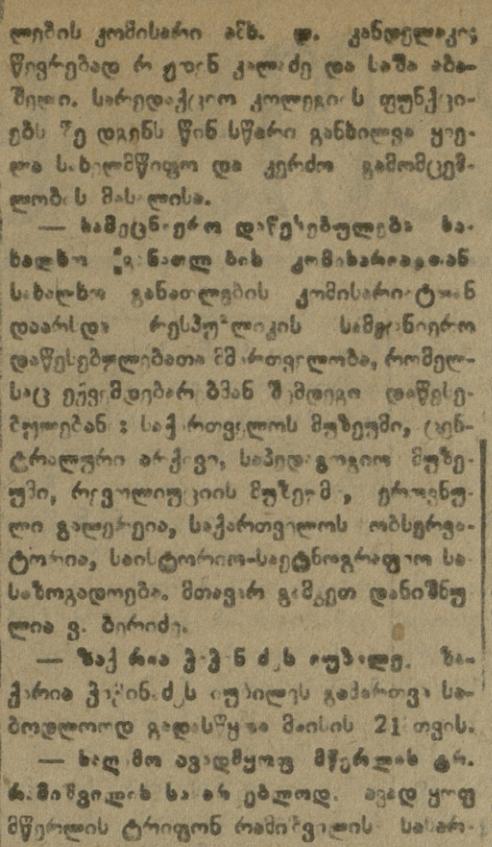 ლების კომისარი ამხ. დ. კანდელაკი;
წევრებად რ ეფენ კალაძე და საშა აბა-
შელი. სარედაქციო კოლეგიის ფუნქცი-
ებს შეადგენს წინასწარი განხილვა ყვე-
ლა სახელმწიფო და კერძო გამომცემ-
ლობის მასალისა.
— სამეცნიერო დაწესებულება სა-
ხალხო განათლების კომისარიატთან
სახალხო განათლების კომისარიატთან
დაარსდა რესპუბლიკის სამეცნიერო
დაწესებულებათა მმართველობა, რომელ-
საც ექვემდებარებიან შემდეგი დაწესე-
ბულებანი: საქართველოს მუზეუმი, ცენ-
ტრალური არქივი, საპედაგოგიო მუზე-
უმი, რევოლიუციის მუზეუმი, ეროვნუ-
ლი გალერეია, საქართველოს ობსერვა-
ტორია, საისტორიო-საეტნოგრაფიო სა-
საზოგადოება. მთავარ გამგეთ დანიშნუ
ლია ვ. ბერიძე.
— ზაქარია ჭიჭინაძის იუბილე. ზა-
ქარია ჭიჭინაძის იუბილეს გამართვა სა-
ბოლოოდ გადასწყდა მაისის 21 თვის.
— საღამო ავადმყოფ მწერლის ტრ.
რამიშვილის სასარგებლოდ. ავადმყოფ
მწერლის ტრიფონ რამიშვილის სასარ-